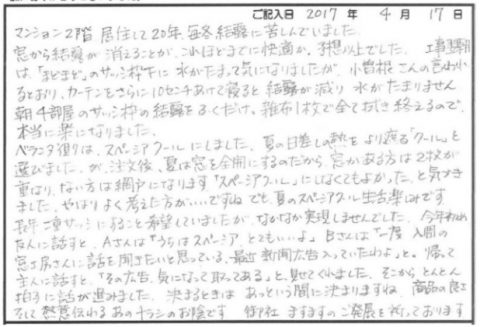 ご記入日 2017 年 4 月 17 日
マンション2階 居住して20年、毎冬 結露に苦しんでいました。
窓から結露が消えることが、これほどまでに快適か、予想以上でした。工事直後
は、「まどまど」のサッシ枠下に水がたまって気になりましたが、小曽根さんの言われ
るとおり、カーテンをさらに10センチあけて寝ると 結露が減り 水がたまりません
朝4部屋のサッシ枠の結露をふくだけ。雑布1枚で全て拭き終えるので、
本当に楽になりました。
ベランダ側は、スペーシアクールにしました。夏の日差しの熱をより遮る「クール」と
選びました。が、注文後、夏は窓を全開にするのだから、窓がある方は2枚が
重なり、ない方は網戸になります「スペーシアクール」にしなくてもよかった、と気づき
ました。やはりよく考えた方が・・・ですね でも、夏のスペーシアクール生活楽しみです
長年 二重サッシにすること希望していましたが、なかなか実現しませんでした。今年初め
友人に話すと、Aさんは「うちはスペーシア、とてもいいよ」Bさんは「一度 入間の
窓工房さんに話を聞きたいと思っている、最近 新聞広告入っていたわよ」と。帰って
主人に話すと、「その広告、気になって取ってある」と、見せてくれました。そこから とんとん
拍子に話が進みました。決まるときは あっという間に決まりますね 商品の良さ
そして 熱意伝わる あのチラシのお陰です 御社 ますますのご発展を祈っております